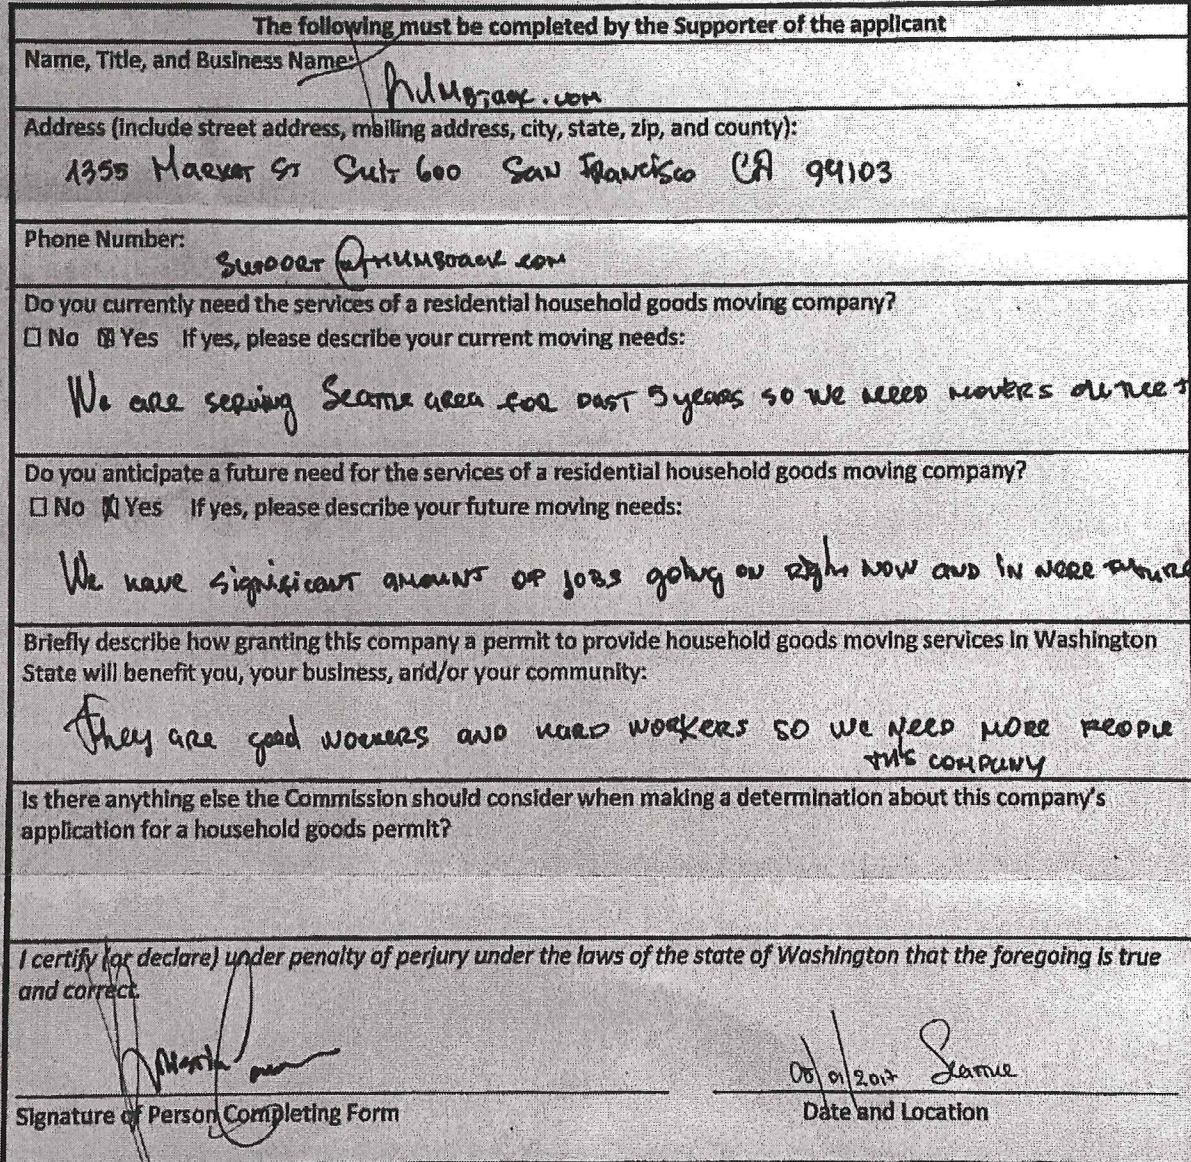 The following must be completed by the Supporter of the applicant
Name, Title, and Business Name:
Thumbtack.com
Address (include street address, mailing address, city, state, zip, and county):
1355 Market St Suit 600 San Francisco CA 94103
Phone Number:
Support @thumbtack.com
Do you currently need the services of a residential household goods moving company?
☐ No ☒ Yes If yes, please describe your current moving needs:
We are serving Seattle area for past 5 years so we need movers
Do you anticipate a future need for the services of a residential household goods moving company?
☐ No ☒ Yes If yes, please describe your future moving needs:
We have significant amount of jobs going on right now and in nere future
Briefly describe how granting this company a permit to provide household goods moving services in Washington
State will benefit you, your business, and/or your community:
They are good workers and hard workers so we need more people
this company
Is there anything else the Commission should consider when making a determination about this company's
application for a household goods permit?
I certify (or declare) under penalty of perjury under the laws of the state of Washington that the foregoing is true
and correct.
08/01/2017 Seattle
Signature of Person Completing Form
Date and Location